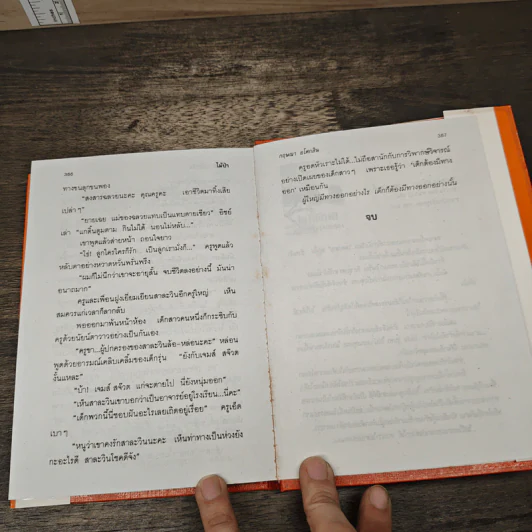 380
ไม้ป่า
ทางขนลูกขนพอง
"สงสารฉลวยนะคะ คุณครูคะ เอาชีวิตมาทิ้งเสีย
เปล่าๆ"
"ยายเฉย แม่ของฉลวยแทบเป็นแทบตายเชียว" อิชย์
เล่า "แกตื่นตูมตาม กินไม่ได้ นอนไม่หลับ..."
เขาพูดแล้วส่ายหน้า ถอนใจยาว
"ใช่! ลูกใครใครก็รัก... เป็นลูกเรามั่งก็..." ครูพูดแล้ว
หลับตาอย่างหวาดหวั่นพรั่นพรึง
"ผมก็ไม่นึกว่าเขาจะอายุสั้น จบชีวิตลงอย่างนี้ มันน่า
อนาถมาก"
ครูและเพื่อนฝูงเยี่ยมเยียนสาละวินอีกครู่ใหญ่ เห็น
สมควรแก่เวลาก็ลากลับ
พอออกมาพ้นหน้าห้อง เด็กสาวคนหนึ่งก็กระซิบกับ
ครูด้วยนัยน์ตาวาวอย่างเป็นกันเอง
"ครูขา...ผู้ปกครองของสาละวินล้อ-หล่อนะคะ" หล่อน
พูดด้วยอารมณ์เคลิบเคลิ้มของเด็กรุ่น "ยังกับเจมส์ สจ๊วต
งั้นแหละ"
"บ้า! เจมส์ สจ๊วต แก่จะตายไป นี่ยังหนุ่มออก"
"เห็นสาละวินเขาบอกว่าเป็นอาจารย์อยู่โรงเรียน...นี่คะ"
"เด็กพวกนี้นี่ชอบฝันอะไรเลยเถิดอยู่เรื่อย" ครูเอ็ด
เบาๆ
"หนูว่าเขาคงรักสาละวินนะคะ เห็นท่าทางเป็นห่วงยัง
กะอะไรดี สาละวินโชคดีจัง"
กฤษณา อโศกสิน
381
ครูอดหัวเราะไม่ได้...ไม่ถือสานักกับการวิพากษ์วิจารณ์
อย่างเปิดเผยของเด็กสาวๆ เพราะเธอรู้ว่า 'เด็กต้องมีทาง
ออก' เหมือนกัน
ผู้ใหญ่มีทางออกอย่างไร เด็กก็ต้องมีทางออกอย่างนั้น
จบ